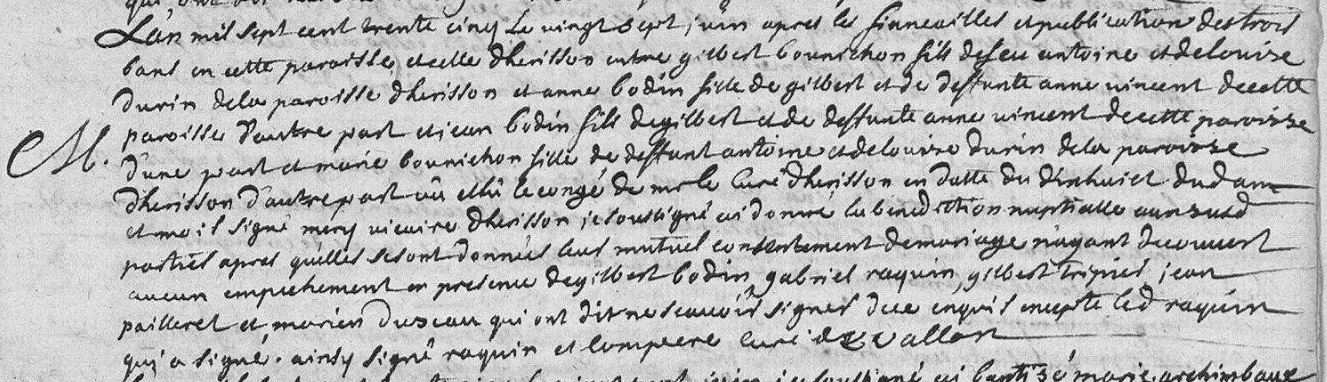 Lan mil sept cent trente cinq Le vingt sept juin apres les fiancailles et publication des trois
bans en cette paroisse et celle dherisson entre gilbert bounichon fils de feu antoine et de louise
durin de la paroisse dherisson et anne bodin fille de gilbert et de deffunte anne vincent de cette
M. paroisse d'autre part et jean bodin fils de gilbert et de deffunte anne vincent de cette paroisse
d'une part et marie bounichon fille de deffunt antoine et de louise durin de la paroisse
dherisson d'autre part vû le congé de mr le Curé dherisson en datte du dixhuict dud an
et mois signé mery vicaire dherisson je soussigné ai donné la benediction nuptialle aux susd
parties apres qu'elles se sont données leur mutuel consentement de mariage n'ayant decouvert
aucun empechement en presence de gilbert bodin, gabriel raquin, gilbert jean
pailleret et marien qui ont dit ne scavoir signer de ce enquis excepté led raquin
qui a signé. ainsy signé raquin et Compere Curé de vallon
baptisé marie archimbaux